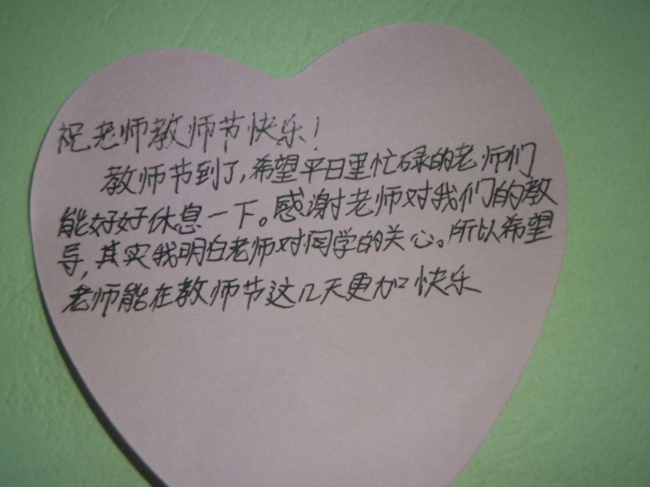 祝老师教师节快乐!
教师节到了,希望平日里忙碌的老师们
能好好休息一下。感谢老师对我们的教
导,其实我明白老师对同学的关心。所以希望
老师能在教师节这几天更加快乐